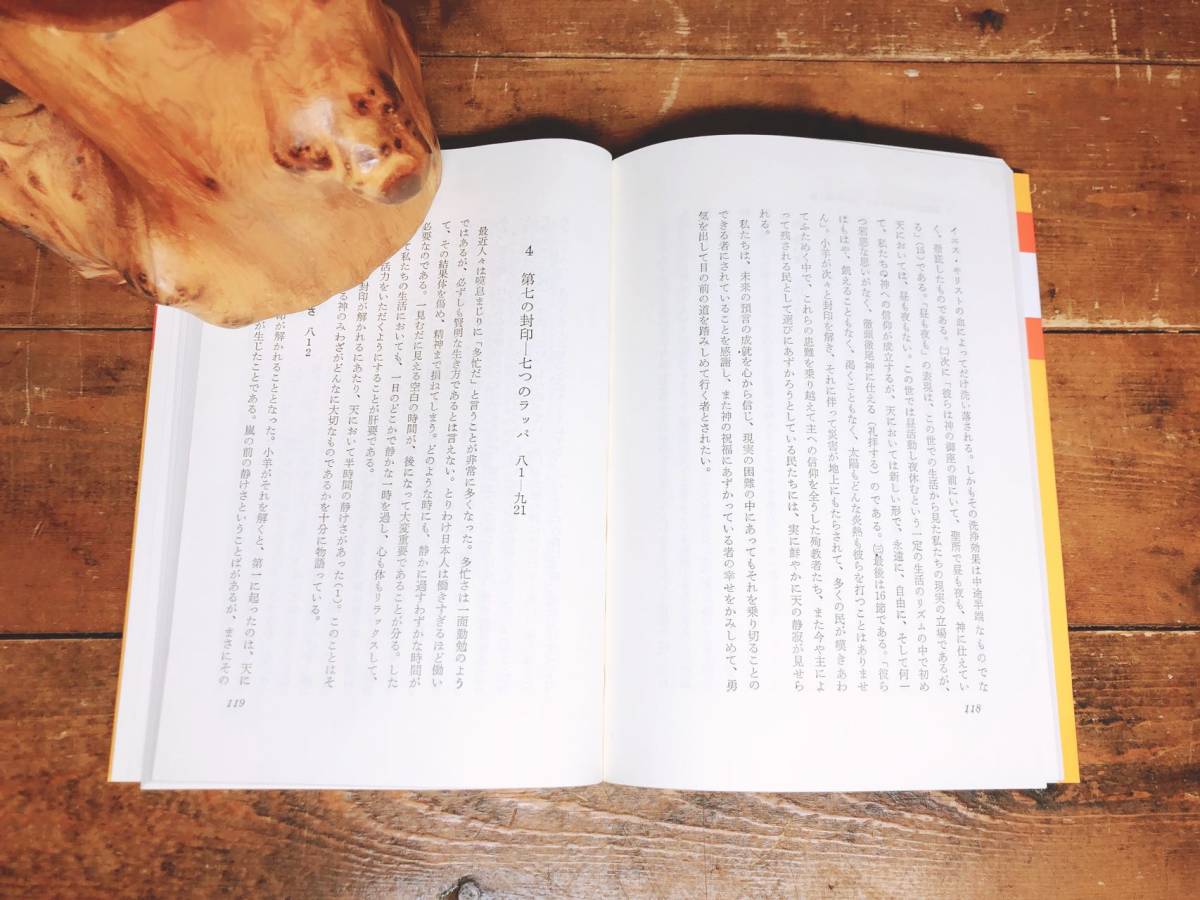 イエス・キリストの血によってだけ洗い落される。しかもその洗浄効果は中途半端なものでな
く、徹底したものである。㈡次に「彼らは神の御座の前にいて、聖所で昼も夜も、神に仕えてい
る」(15)である。「昼も夜も」の表現は、この世での生活から見た私たちの現実の立場であるが、
天においては、昼も夜もない。この世では昼活動し夜休むという一定の生活のリズムの中で初め
て、私たちの神への信仰が成立するが、天においては新しい形で、永遠に、自由に、そして何一
つ邪悪な思いがなく、徹頭徹尾神に仕える(礼拝する)のである。㈢最後は16節である。「彼ら
はもはや、飢えることもなく、渇くこともなく、太陽もどんな炎熱も彼らを打つことはありませ
ん」。小羊が次々と封印を解き、それに伴って災害が地上にもたらされて、多くの民が嘆きあわ
てふためく中で、これらの患難を乗り越えて主への信仰を全うした殉教者たち、また今や主によ
って残される民として選びにあずかろうとしている民たちには、実に鮮やかに天の静寂が見せら
れる。
私たちは、未来の預言の成就を心から信じ、現実の困難の中にあってもそれを乗り切ることの
できる者にされていることを感謝し、また神の祝福にあずかっている者の幸せをかみしめて、勇
気を出して目の前の道を踏みしめて行く者とされたい。
118
4 第七の封印―七つのラッパ 八1―九21
最近人々は嘆息まじりに「多忙だ」と言うことが非常に多くなった。多忙さは一面勤勉のよう
ではあるが、必ずしも賢明な生き方であるとは言えない。とりわけ日本人は働きすぎるほど働い
て、その結果体を痛め、精神まで損ねてしまう。どのような時にも、静かに過すわずかな時間が
必要なのである。一見むだに見える空白の時間が、後になって大変重要であることが分る。した
て私たちの生活においても、一日のどこかで静かな一時を過し、心も体もリラックスして、
活力をいただくようにすることが肝要である。
封印が解かれるにあたり、天において半時間の静けさがあった(1)。このことはそ
る神のみわざがどんなに大切なものであるかを十分に物語っている。
さ 八12
印が解かれることとなった。小羊がそれを解くと、第一に起ったのは、天に
が生じたことである。嵐の前の静けさということばがあるが、まさにその
119